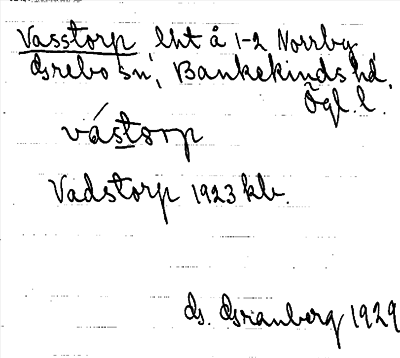 Vasstorp, lht å 1-2 Norrby,
Grebo sn, Bankekinds hd,
Ögl. l.
vástorp
Vadstorp 1923 kb.
Gs. Granberg 1929